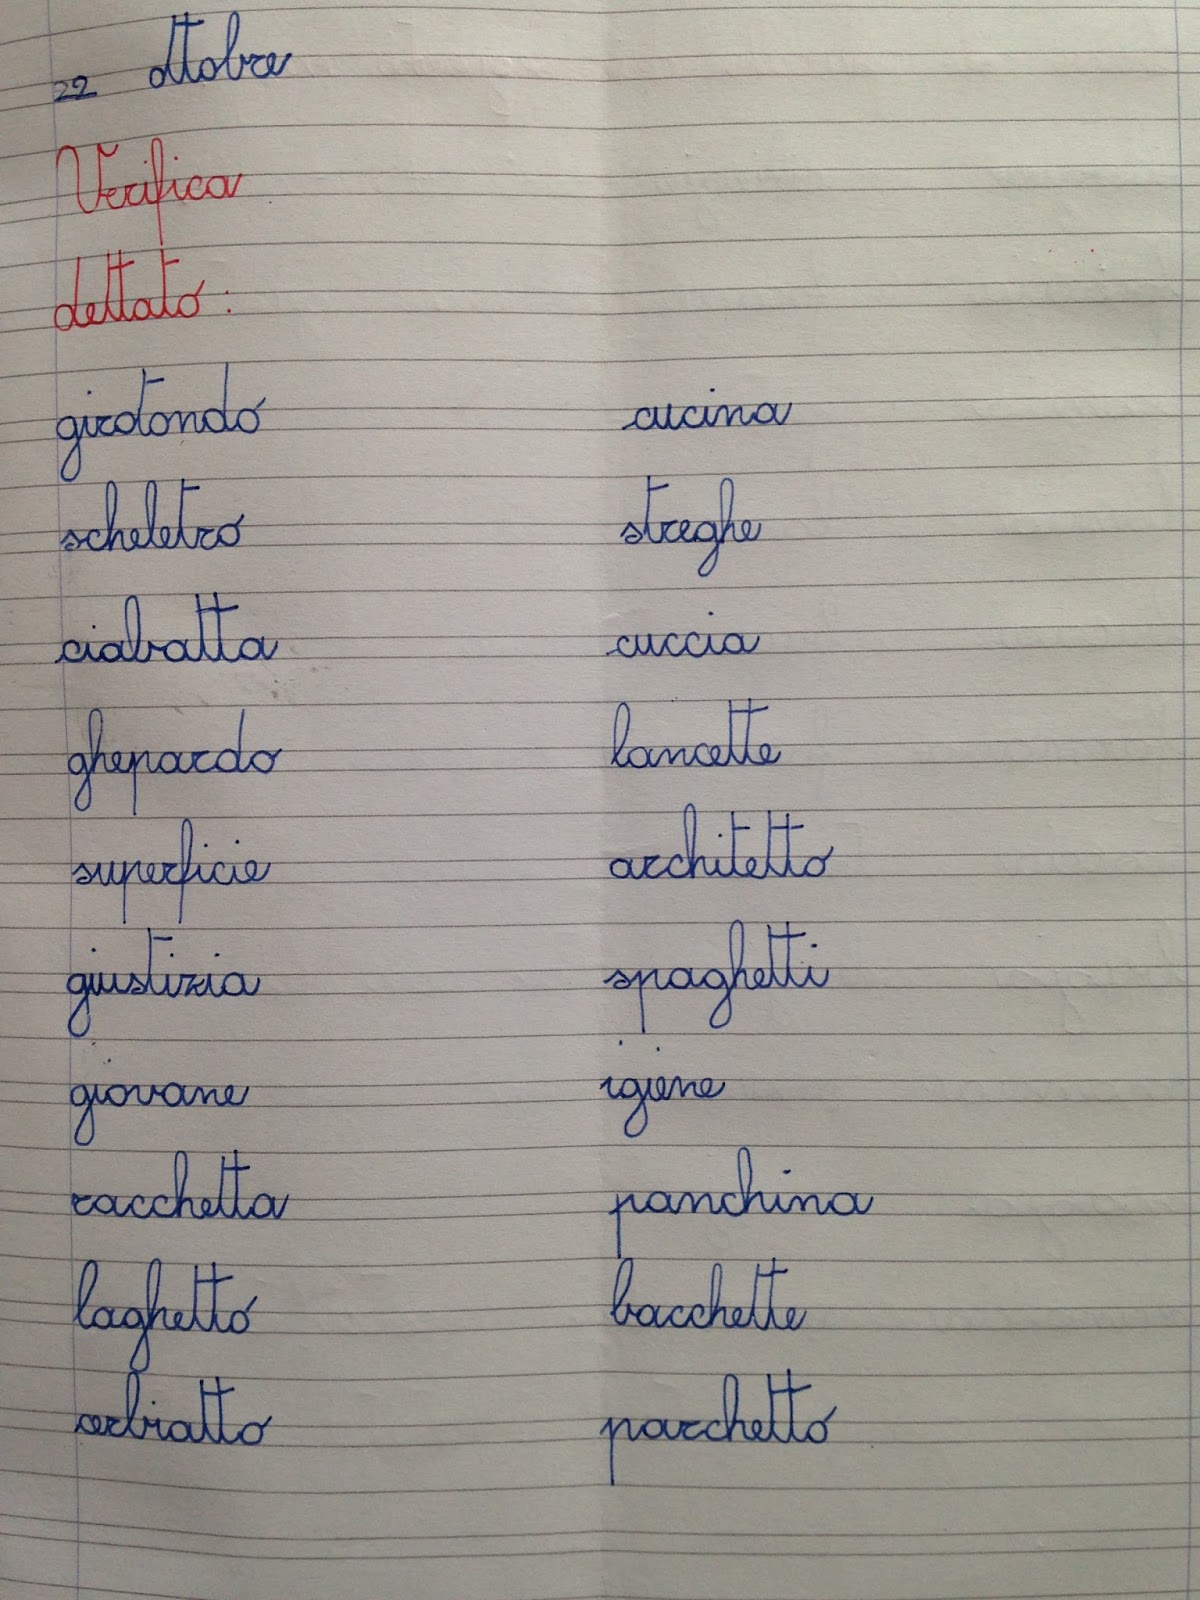 22 ottobre
Verifica
dettato:
girotondo cucina
scheletro streghe
ciabatta cuccia
ghepardo lancette
superficie architetto
giustizia spaghetti
giovane igiene
racchetta panchina
laghetto bacchette
cerbiatto parchetto